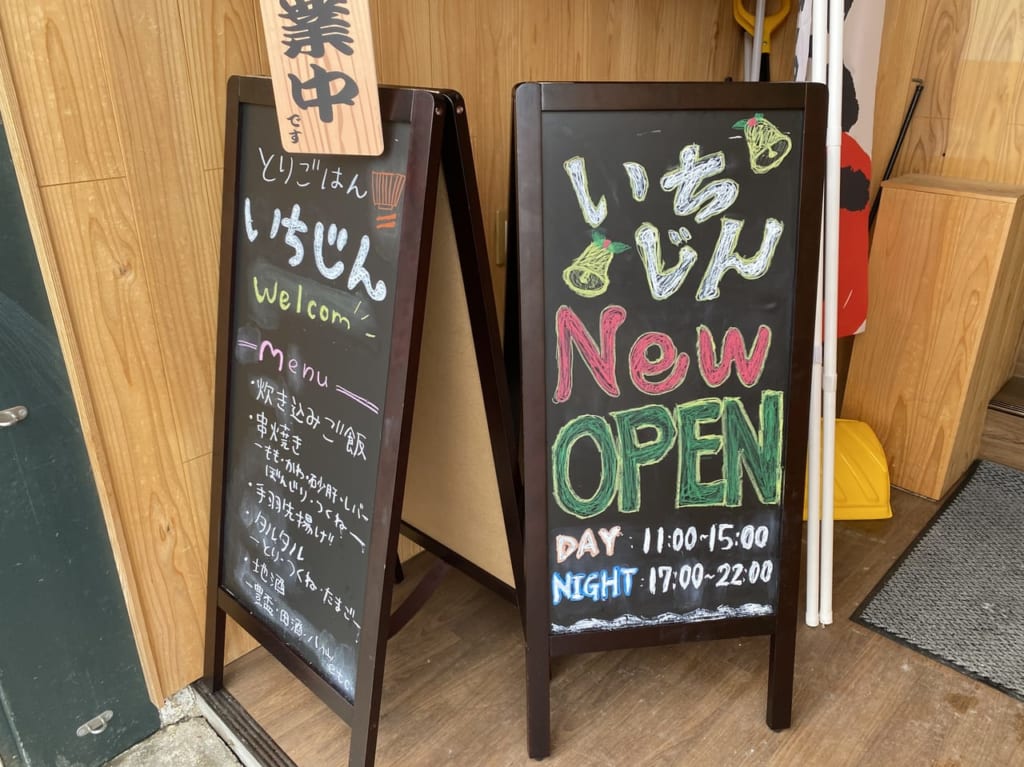 業中
です
とりごはん
いちじん
Welcom
Menu
・炊き込みご飯
・串焼き
ーもも・かわ・砂肝・レバー
ぼんじり・つくねー
・手羽先揚げ
・タルタル
ーとり・つくね・たまごー
・地酒
ー豊盃・田酒・八仙
etc
いち
じん
New
OPEN
DAY : 11:00~15:00
NIGHT : 17:00~22:00